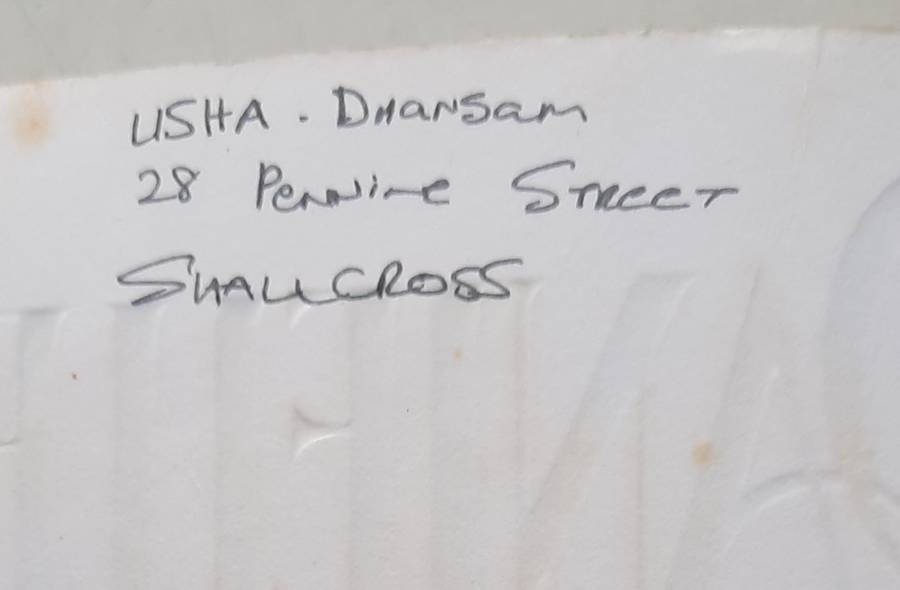 USHA. DHANSAM
28 Pennine STREET
SHALLCROSS